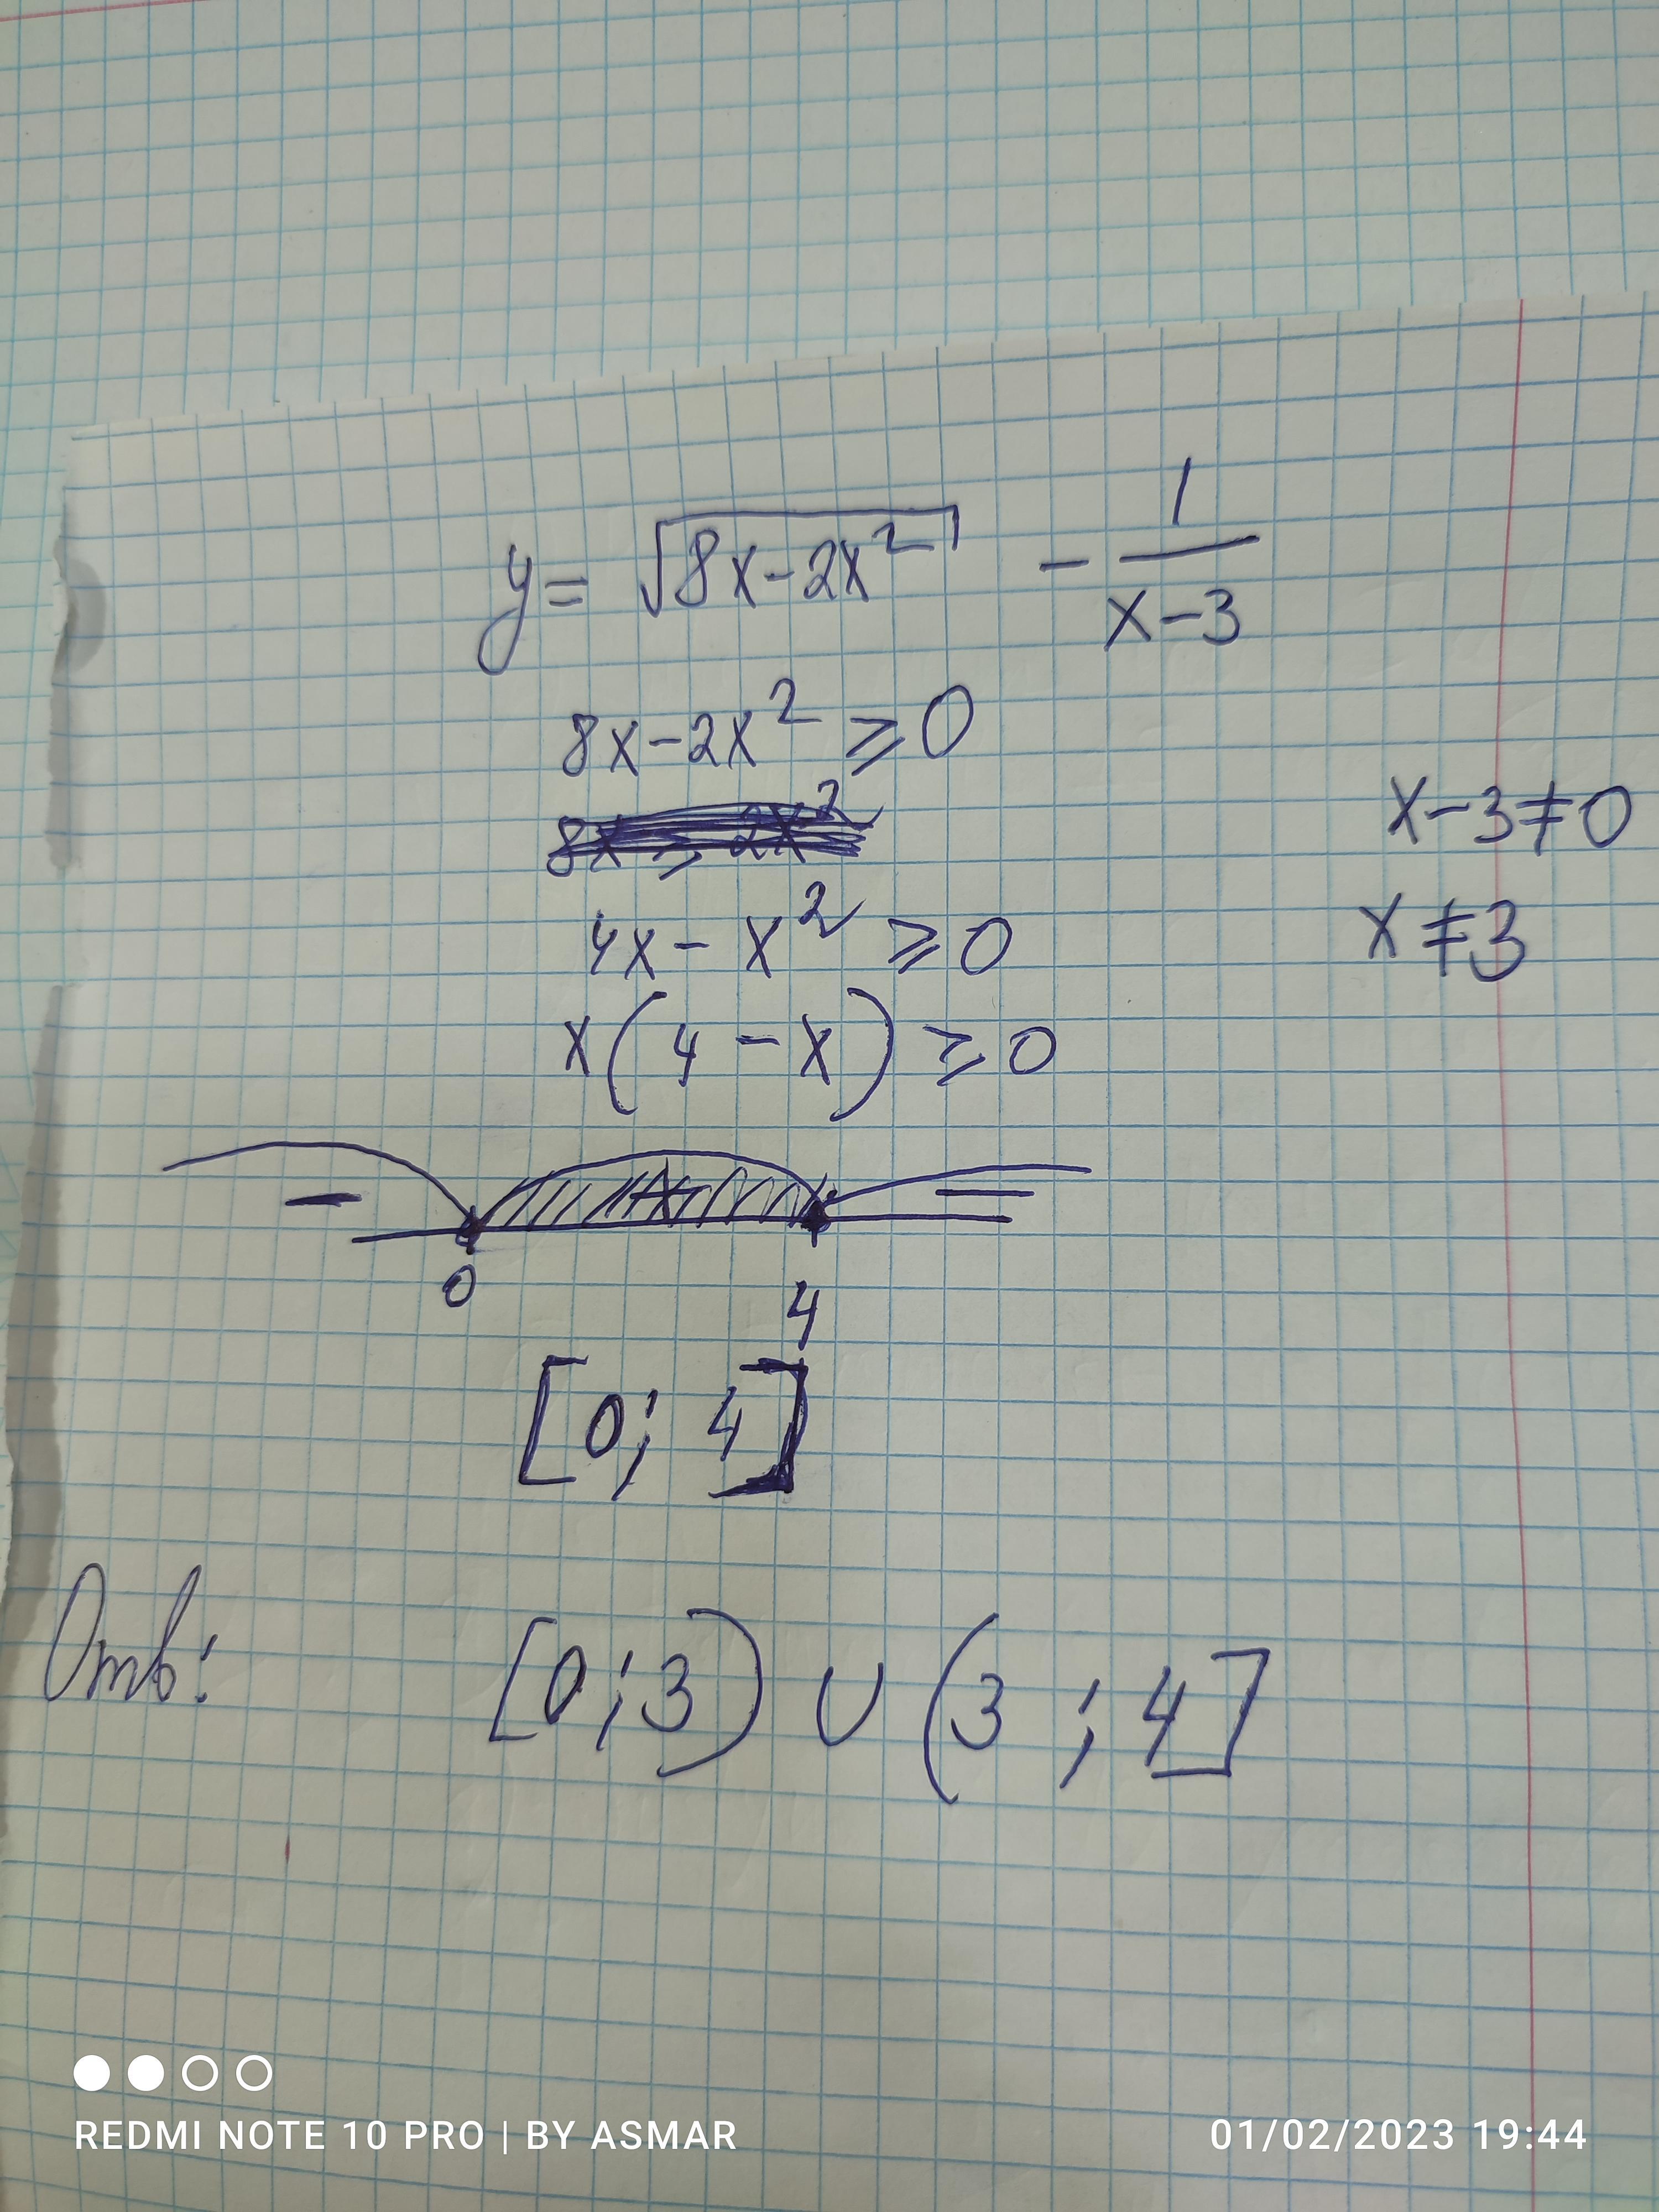 y = √8x-2x² - 1/x-3
8x-2x² ≥ 0
8x ≥ 2x²
x-3≠0
4x - x² ≥ 0
x ≠ 3
x(4 - x) ≥ 0
- + -
0 4
[0; 4]
Отв: [0;3) ∪ (3 ; 4]
REDMI NOTE 10 PRO | BY ASMAR
01/02/2023 19:44